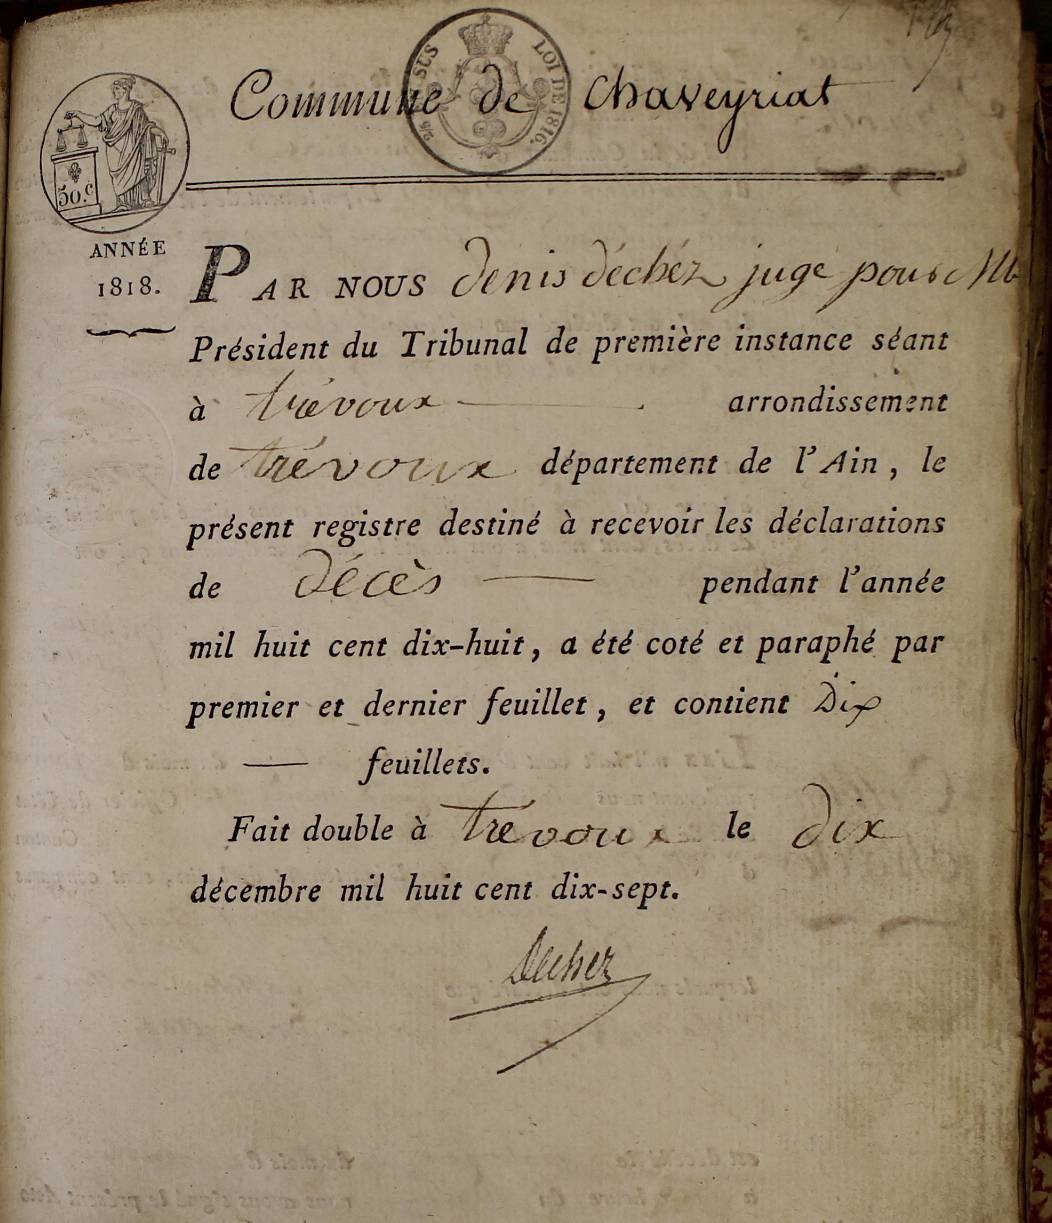 Commune de Chaveyriat
EN SUS
LOI DE 1816.
50.c
ANNÉE
1818.
PAR NOUS denis déchéz juge pour Mr
Président du Tribunal de première instance séant
à trévoux arrondissement
de trévoux département de l'Ain, le
présent registre destiné à recevoir les déclarations
de décès pendant l'année
mil huit cent dix-huit, a été coté et paraphé par
premier et dernier feuillet, et contient Dix
feuillets.
Fait double à trévoux le dix
décembre mil huit cent dix-sept.
Dechez